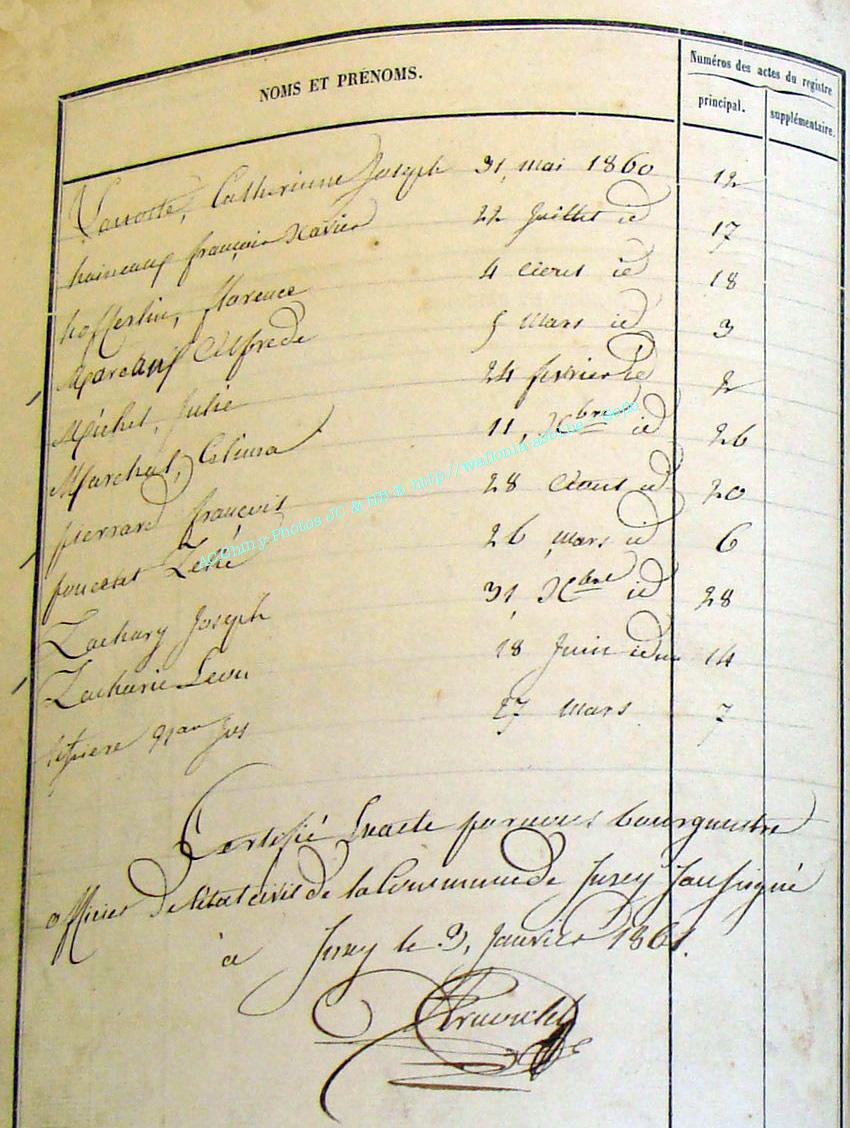 NOMS ET PRÉNOMS.
Numéros des actes du registre
principal. supplémentaire.
Catherinne Joseph 31, mai 1860 12
haineaux françois Xavier 22 Juillet id 17
florence 4 aout id 18
Alfrede 5 mars id 3
Michel, Julie 24 fevrier id 2
Marchal, Celina 11, Xbre id 26
pierrard françois 28 aout id 20
26 mars id 6
Zachary Joseph 31, Xbre id 28
Zacharie Leon 18 Juin idem 14
Jos 27 mars 7
Certifié Exacte par nous bourgmestre
officier de l'état civil de la Commune de Jusey Soussigné
à Jusey le 3, Janvier 1861.
AC Chiny-Photos JC & HB © http://wallonia-asbl.be